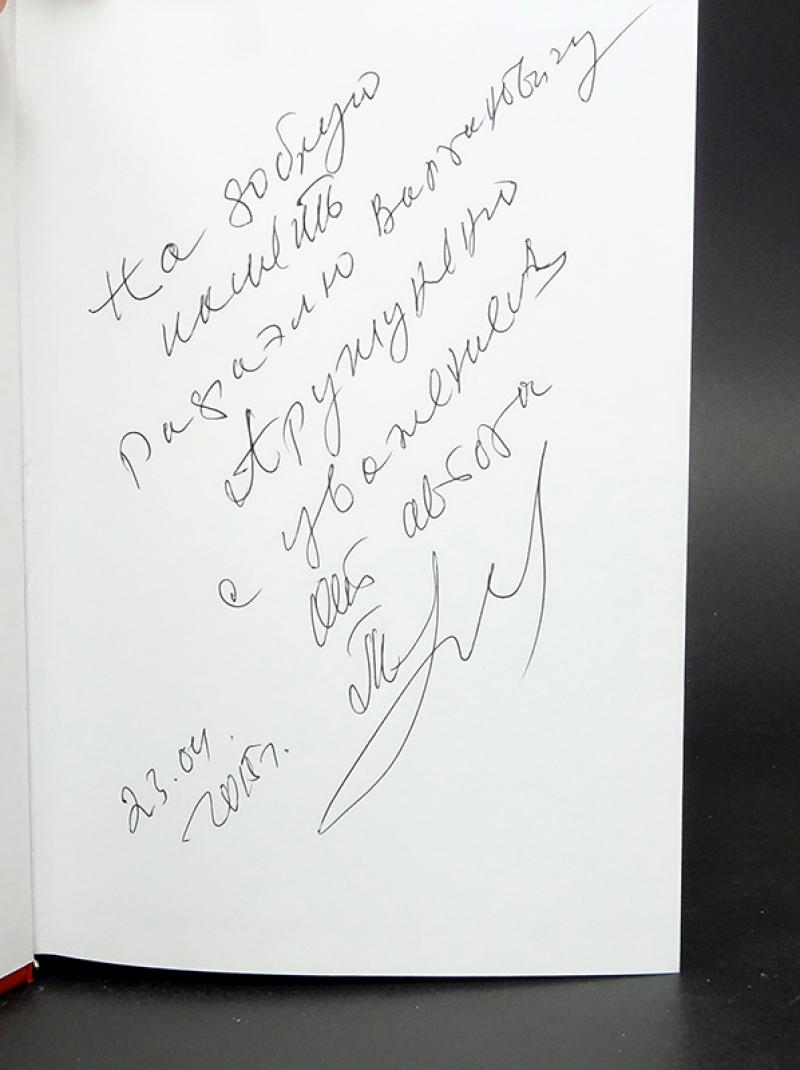 На добрую
память
Рафаэлю Вартановичу
Арутюняну
с уважением
от автора
23.04.
2015г.